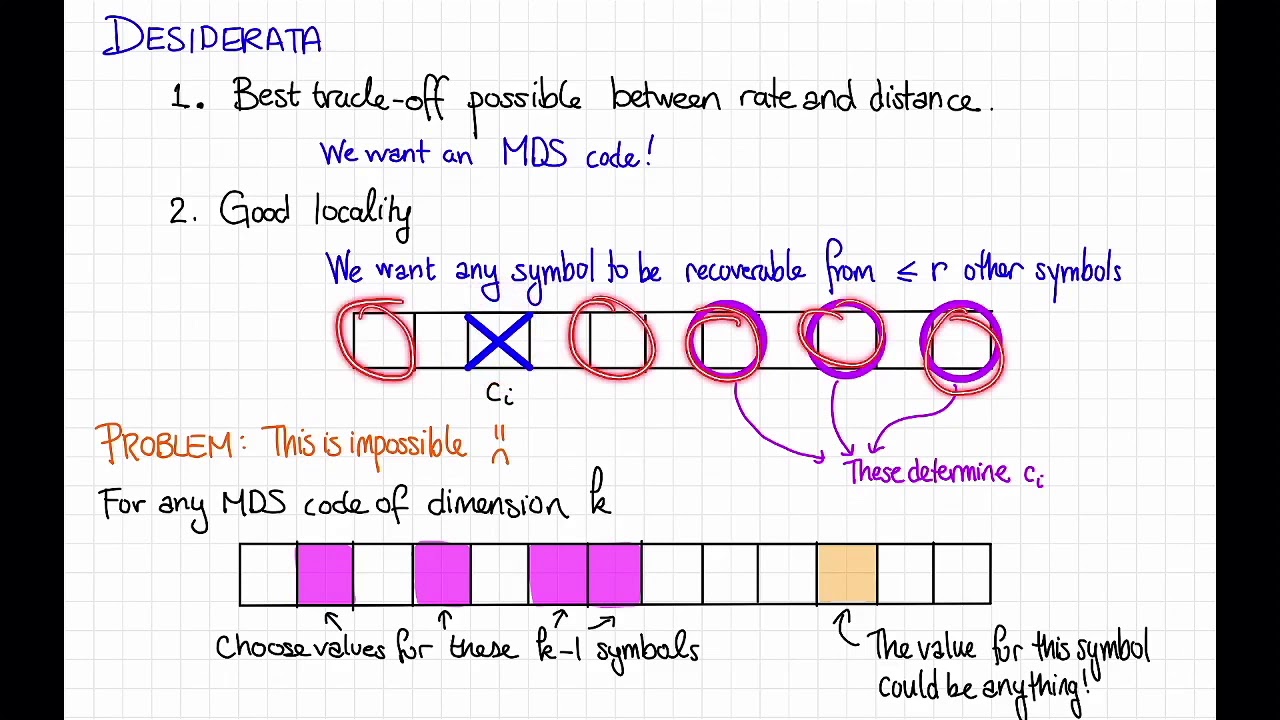 DESIDERATA
1. Best trade-off possible between rate and distance.
We want an MDS code!
2. Good locality
We want any symbol to be recoverable from ≤ r other symbols
cᵢ
PROBLEM: This is impossible
These determine cᵢ
For any MDS code of dimension k
Choose values for these k-1 symbols
The value for this symbol
could be anything!